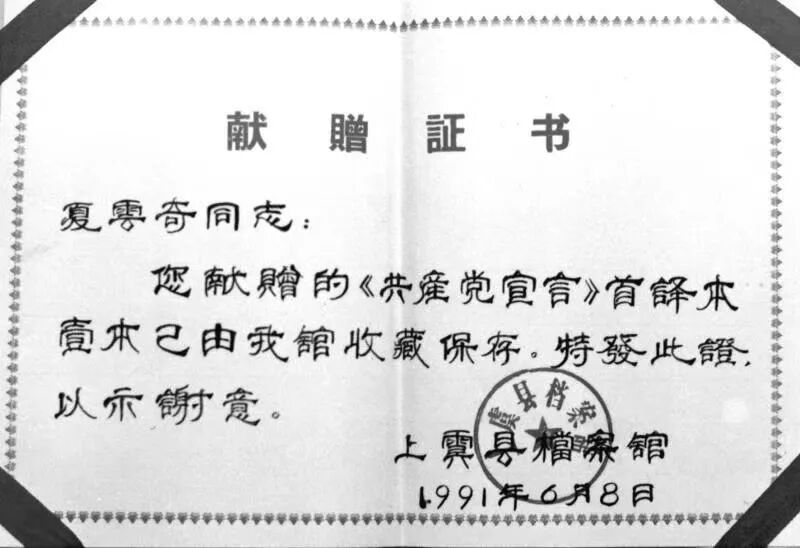 献赠証书
夏雲奇同志：
您献赠的《共産党宣言》首譯本
壹本已由我舘收藏保存。特發此證，
以示謝意。
虞县档案
上虞县檔案舘
1991年6月8日